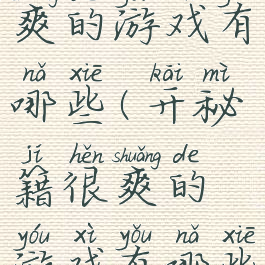 爽的游戏有
nǎ xiē kāi mì
哪些(开秘
jí hěn shuǎng de
籍很爽的
yóu xì yǒu nǎ xiē
游戏有哪些